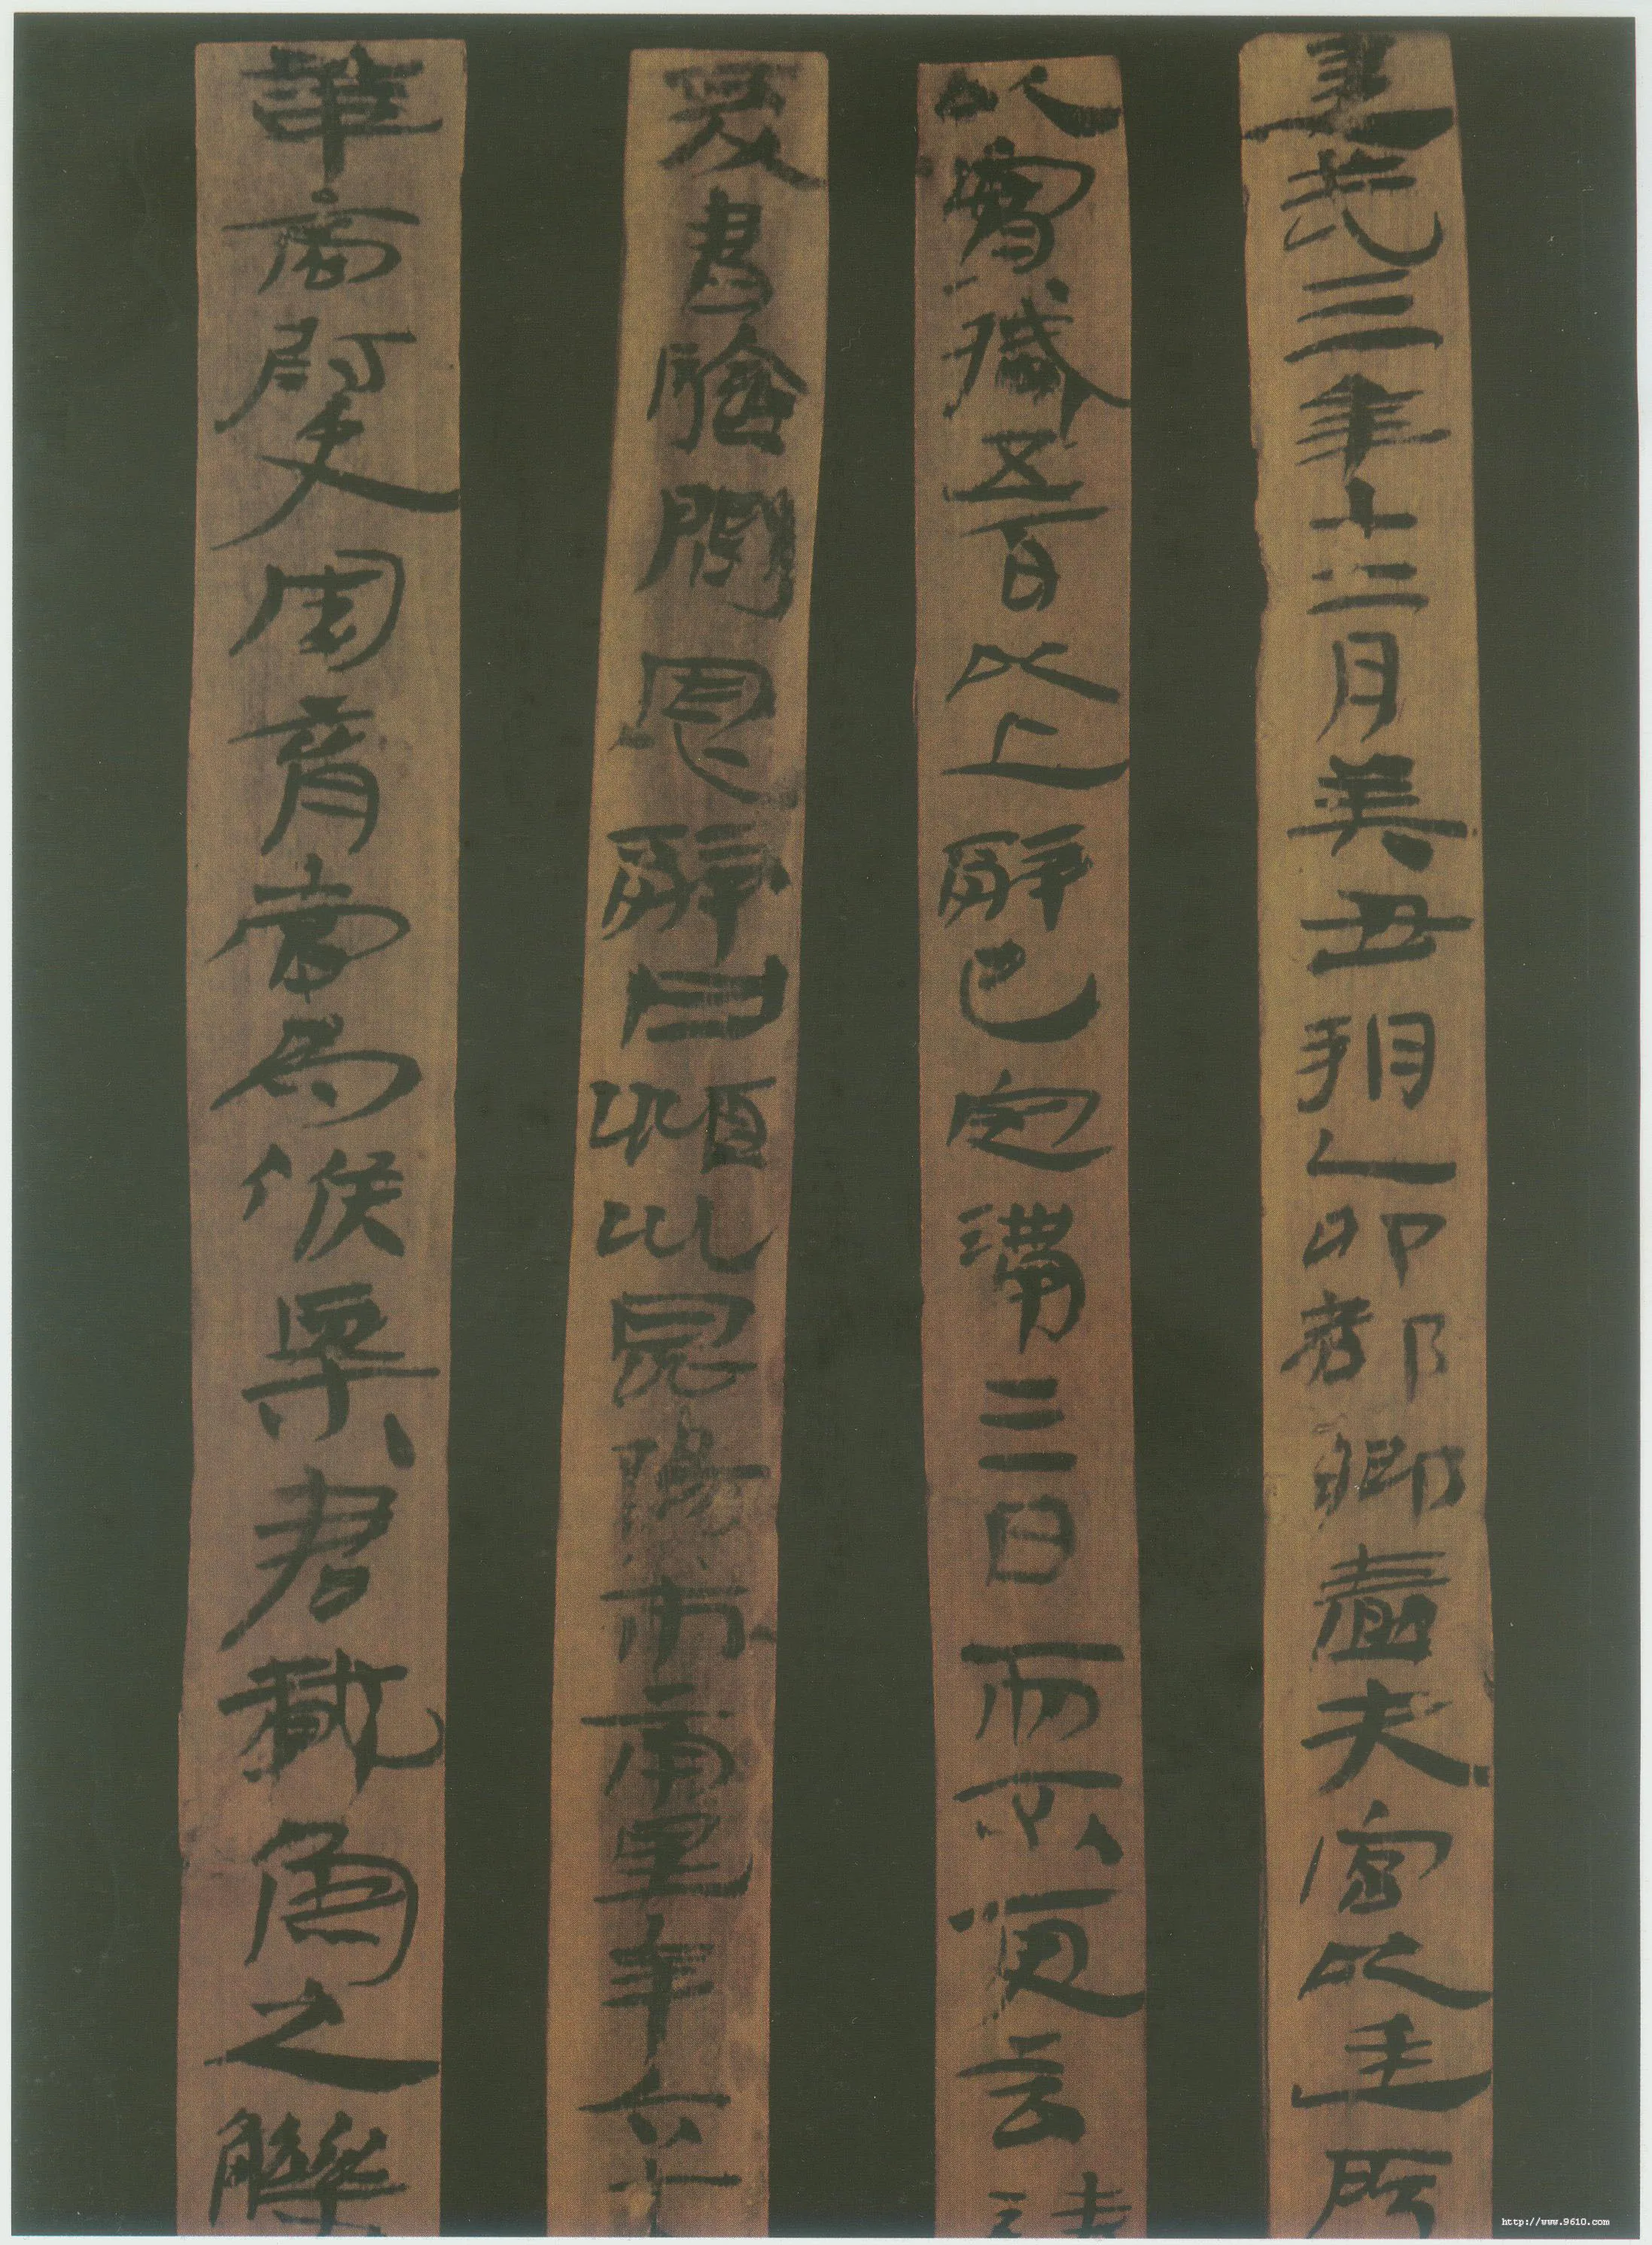 建武三年十二月癸丑朔乙卯都鄉嗇夫宮以廷所
以實臧五百以上辭已定滿三日而不更言請
爰書驗問恩辭曰潁川昆陽市南里年六十
華商尉史周育當為候粟君載魚之觻
http://www.9610.com